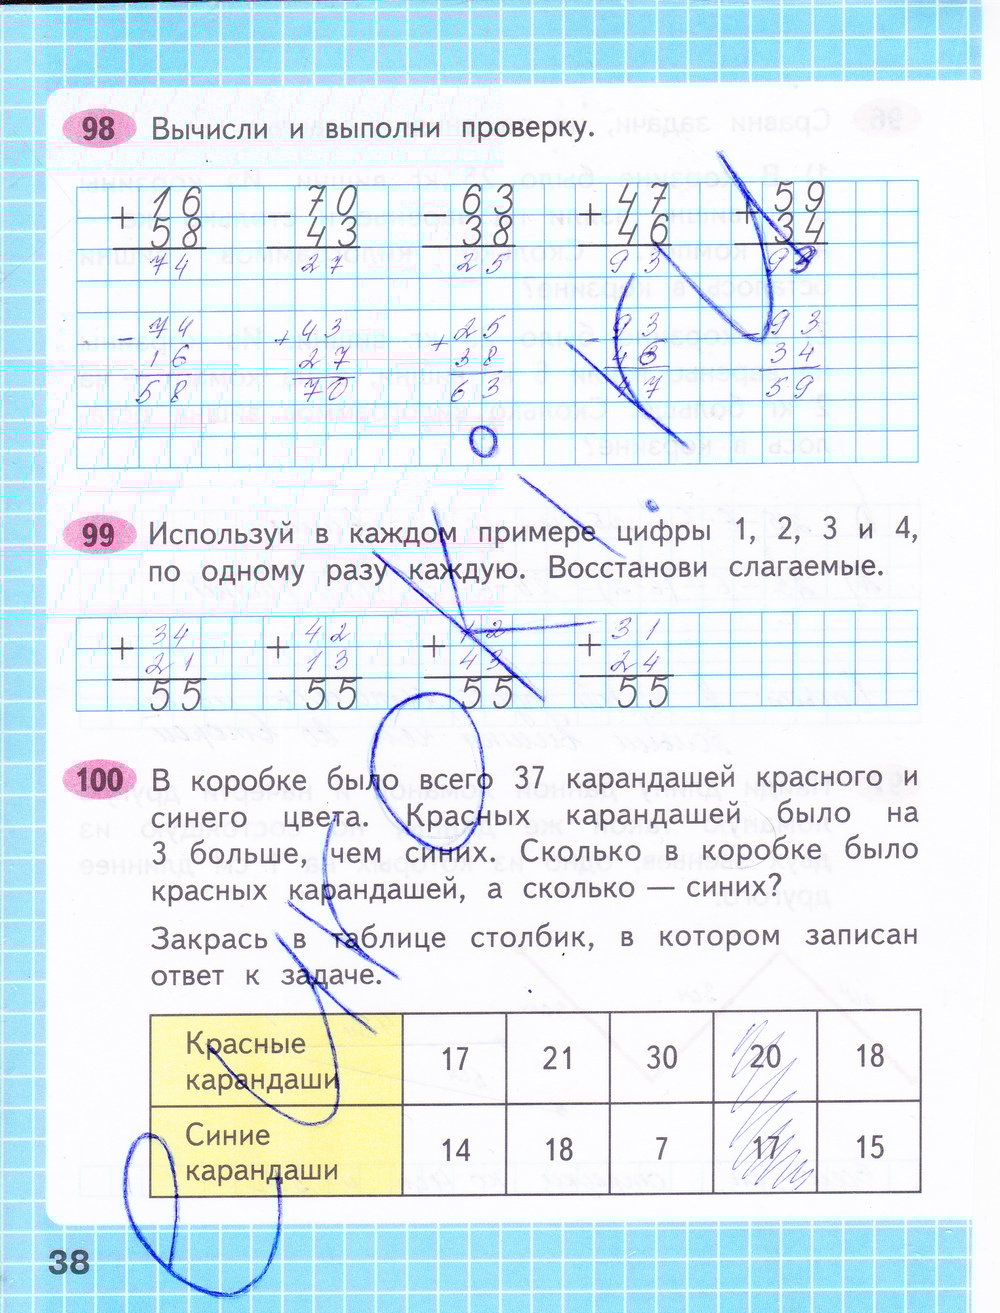 98 Вычисли и выполни проверку.
+ 16 − 70 − 63 + 47 + 59
58 43 38 46 34
74 27 25 93 93
− 74 + 43 + 25 − 93 − 93
16 27 38 46 34
58 70 63 47 59
99 Используй в каждом примере цифры 1, 2, 3 и 4,
по одному разу каждую. Восстанови слагаемые.
+ 34 + 42 + 12 + 31
21 13 43 24
55 55 55 55
100 В коробке было всего 37 карандашей красного и
синего цвета. Красных карандашей было на
3 больше, чем синих. Сколько в коробке было
красных карандашей, а сколько — синих?
Закрась в таблице столбик, в котором записан
ответ к задаче.
Красные
карандаши 17 21 30 20 18
Синие
карандаши 14 18 7 17 15
38